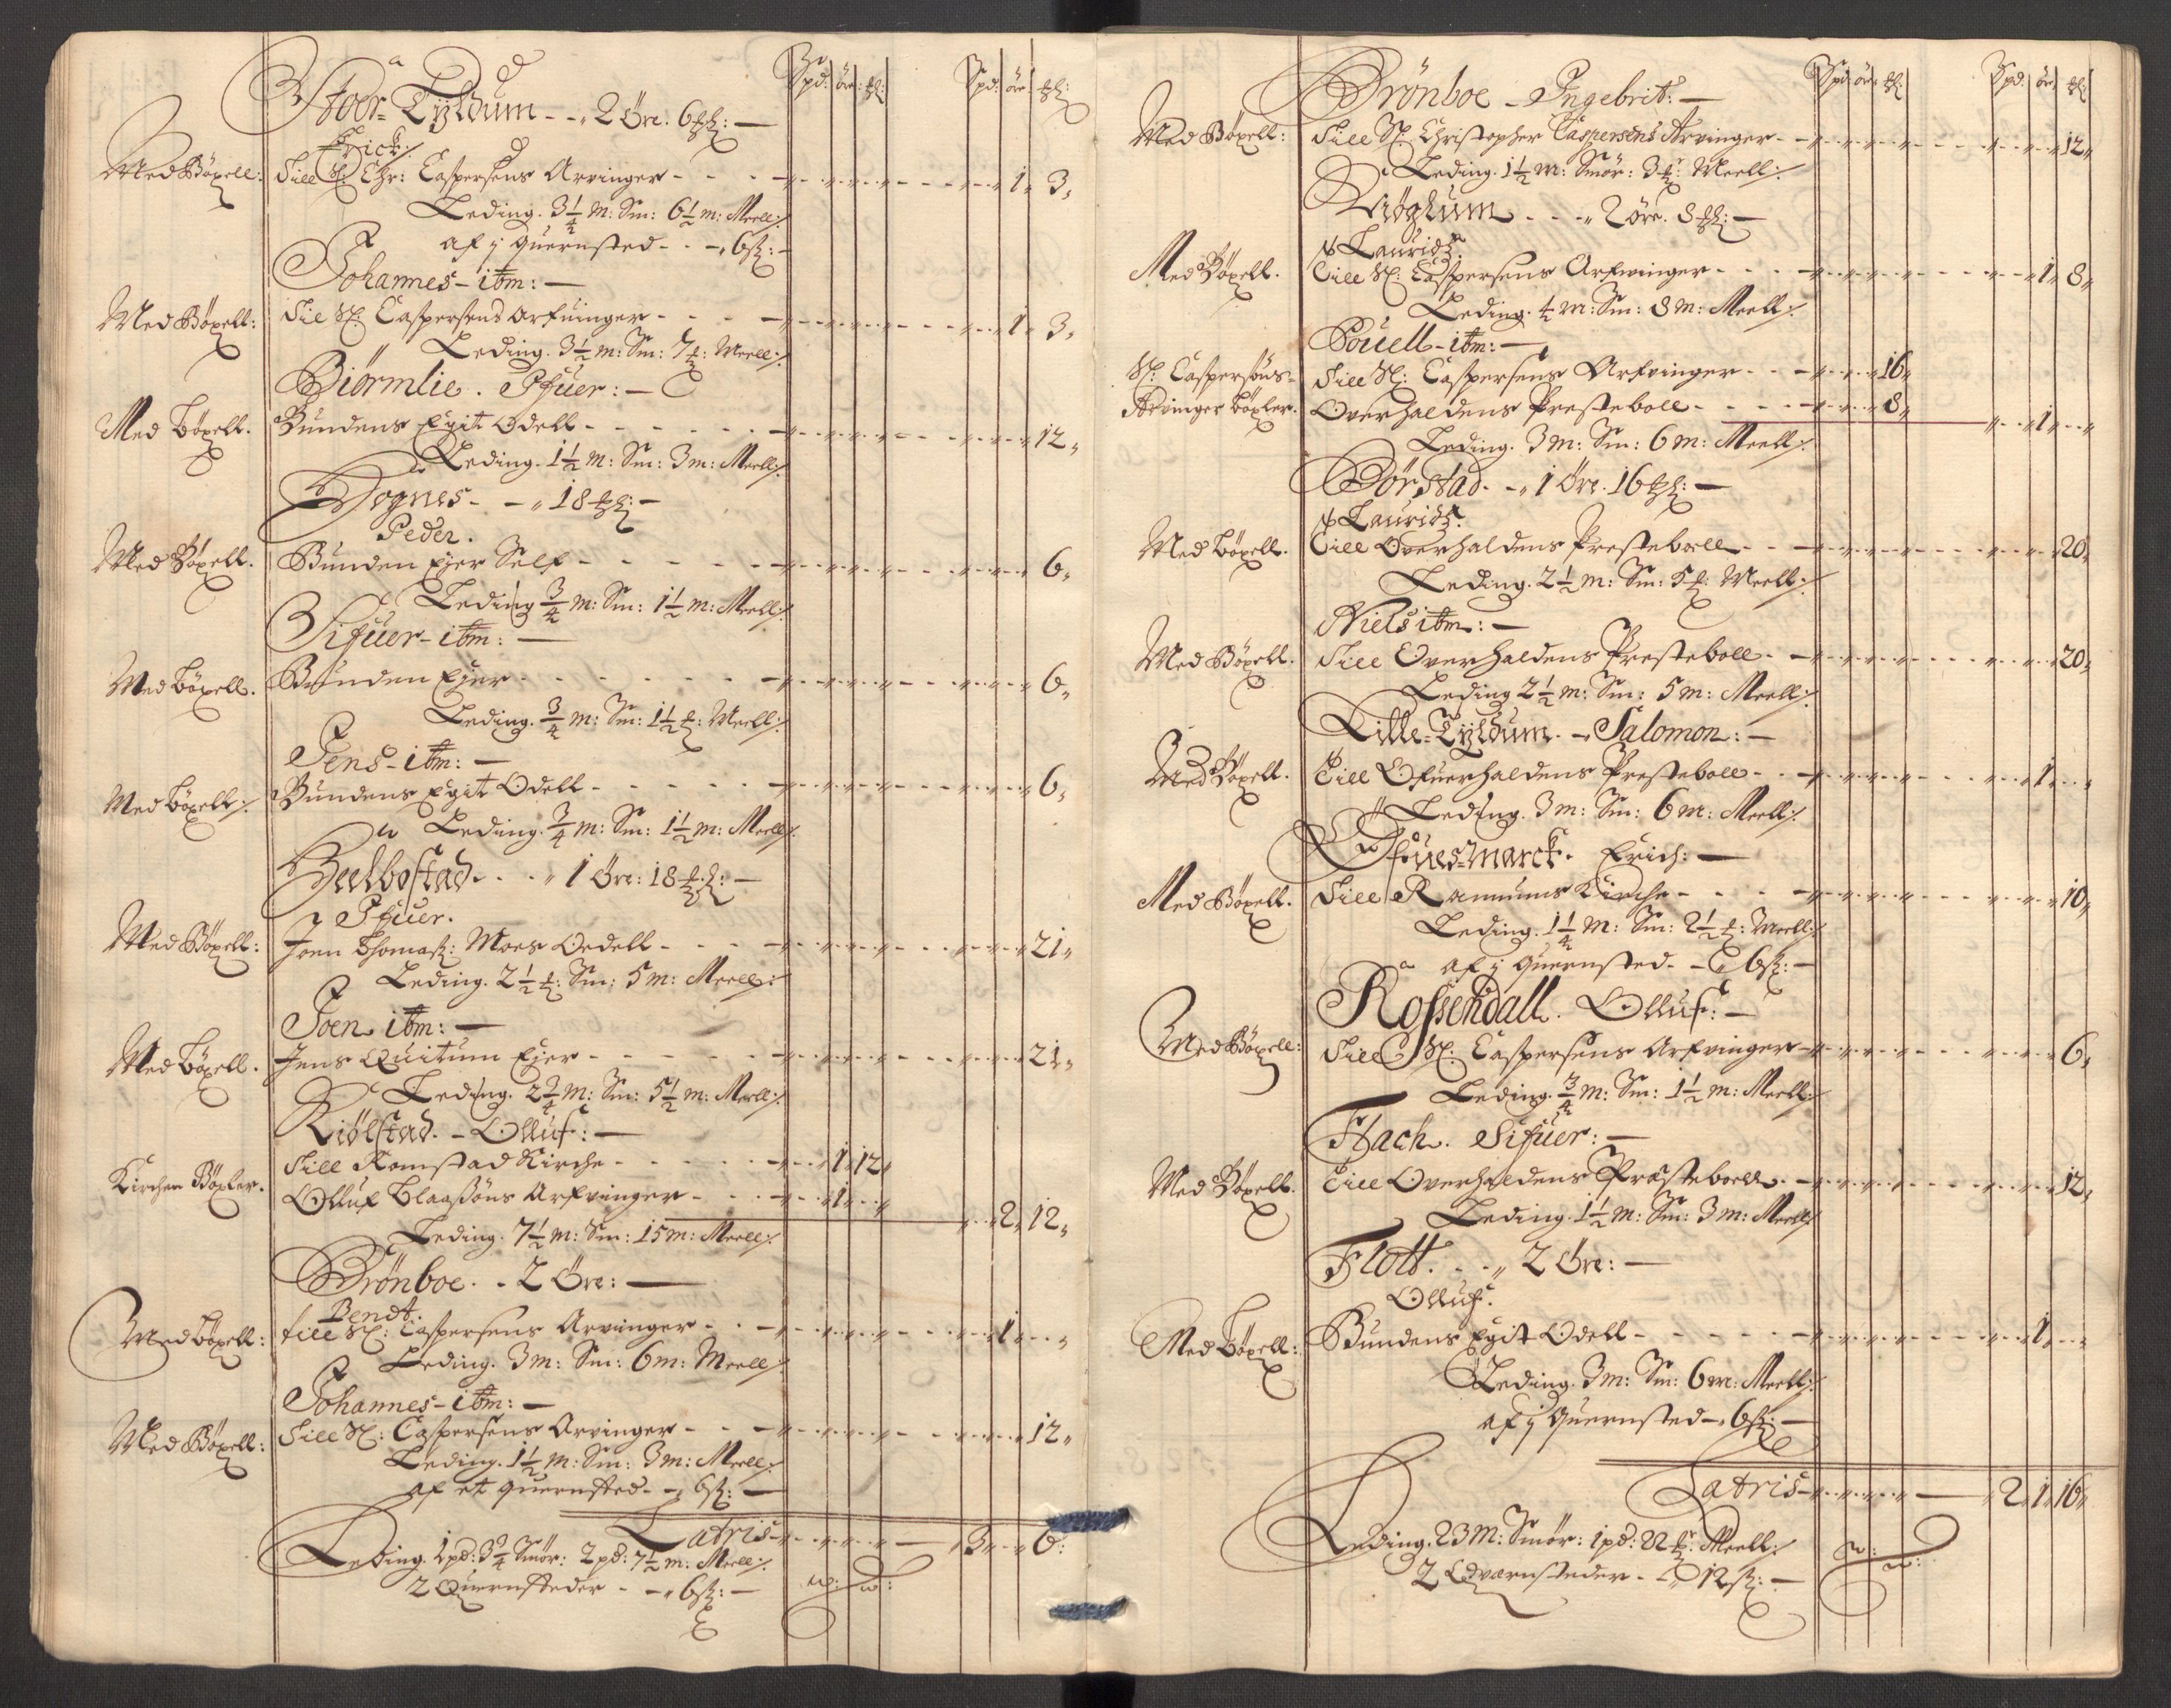 Spd: öre: [?] Spd: öre [?]
Stoer-Tyldum - - „ 2 Öre. 6 [?]: —
Erick:/
Med Böxell: Till Sl: Chr: Caspersens Arvinger - - - 1„ 3„
Leding. 3 1/4 m: Sm: 6 1/2 m: Meell:/
af y quernsted - - - „ 6 ſk: —
Johannes - itm: —
Med Böxell: Till Sl: Caspersens Arfuinger - - - 1„ 3„
Leding. 3 1/2 m: Sm: 7 [?]: Meell:/
Biörmlie. Ifuer: —
Med Böxell. Bundens Egit Odell - - - - - 12„
Leding. 1 1/2 m: Sm: 3 m: Meell:/
Hognes - - „ 18 [?]: —
Peder.
Med Böxell. Bunden Ejer Self - - - - - 6„
Leding 3/4 m: Sm: 1 1/2 m: Meell:/
Sifuer - itm: —
Med Böxell. Bunden Ejer - - - - - 6„
Leding. 3/4 m: Sm: 1 1/2 [?]: Meell:/
Jens - itm: —
Med Böxell:/ Bundens Egit Odell - - - - - 6„
Leding. 3/4 m: Sm: 1 1/2 m: Meell:/
Helbostad - - - „ 1 Öre: 18 [?]: —
Ifuer.
Med Böxell: Joen Thomaß: Moes Oedell - - - 21„
Leding. 2 1/2 [?]: Sm: 5 m: Meell:/
Joen itm: —
Med Böxell. Jens Quitum Ejer - - - - - 21„
Leding. 2 3/4 m: Sm: 5 1/2 m: Meell:/
Kiölstad. - Olluf: —
Kirchen Böxler. Till Ramstad Kirche - - - - - 1„ 12„
Olluf Blaaßöns Arfvinger - - - 1„ - „ 2„ 12„
Leding. 7 1/2 m: Sm: 15 m: Meell:/
Brönboe. - 2 Öre: —
Bendt.
Med Böxell: till Sl: Caspersens Arvinger - - - 1„ - - „
Leding. 3 m: Sm: 6 m: Meell:/
Johannes - itm: —
Med Böxell: Till Sl: Caspersens Arvinger - - - 12„
Leding. 1 1/2 m: Sm: 3 m: Meell:/
af et quernsted - - „ 6 ſk: —
Latris - - - - - „ 3„ - „ 6:
Leding. 1 pd: 3 3/4 Smör: 2 pd: 7 1/2 m: Meell:/
2 Quernsteder - - „ 6 ſk: —
Spd: öre [?] Spd: öre [?]
Brönboe - Ingebrit: —
Med Böxell: Till Sl: Christopher Caspersens Arvinger - - 12„
Leding. 1 1/2 m: Smör: 3 [?]: Meell:/
Röglum - - - „ 2 öre. 8 [?]: —
Lauridz.
Med Böxell. Till Sl: Caspersens Arfvinger - - - 1„ 8„
Leding. 4 m: Sm: 8 m: Meell:/
Pouell - itm: —
Sl: Caspersöns Till Sl: Caspersens Arfvinger - - - 16„
Arvinger Böxler. Overhaldens Presteboll - - - - 8„ - „ 1„ - „
Leding. 3 m: Sm: 6 m: Meell:/
Börstad. - „ 1 Öre. 16 [?]: —
Lauridz.
Med Böxell. Till Overhaldens Presteboell - - - 20„
Leding. 2 1/2 m: Sm: 5 [?]: Meell:/
Niels itm: —
Med Böxell. Till Overhaldens Presteboll - - - 20„
Leding 2 1/2 m: Sm: 5 m: Meell:/
Litle-Tyldum. - Salomon: —
Med Böxell. Till Ofuerhaldens Presteboll - - - 1„ - „
Leding. 3 m: Sm: 6 m: Meell:/
Ofuesmarck. Erich: —
Med Böxell. Till Ranumms Kirche - - - 10„
Leding. 1 1/4 m: Sm: 2 1/2 [?]: Meell:/
af y quernsted - „ 6 ſk: —
Rossendall. Olluf: —
Med Böxell: Till Sl: Caspersens Arfvinger - 6„
Leding. 3/4 m: Sm: 1 1/2 m: Meell:/
Flach. Sifuer: —
Med Böxell. Till Overhaldens Prästeboell - - 12„
Leding. 1 1/2 m: Sm: 3 m: Meell:/
Flott. - - „ 2 Öre: —
Olluf.
Med Böxell: Bundens Egit Odell - - - - - 1„ - „
Leding. 3 m: Sm: 6 m: Meell:/
af y Quernsted - „ 6 ſk: —
Latris - - - - - „ 2„ 1„ 16„
Leding. 23 m: Smör: 1 pd: 22 [?]: Meell:/
2 Qvarnsteder - „ 12 ſk: —